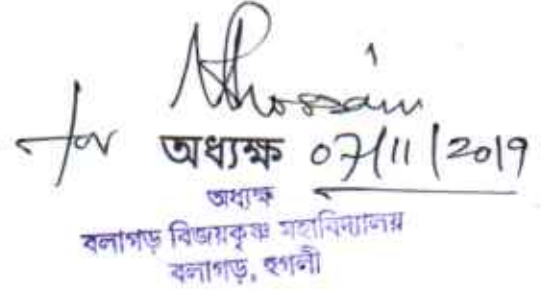 for অধ্যক্ষ 07/11/2019
অধ্যক্ষ
বলাগড় বিজয়কৃষ্ণ মহাবিদ্যালয়
বলাগড়, হুগলী